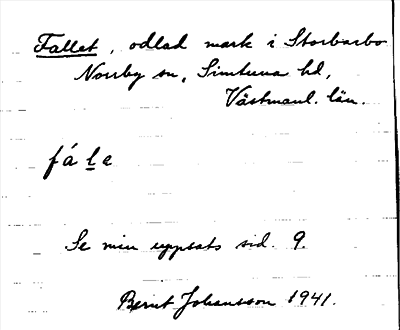 Fallet, odlad mark i Storbarbo
Norrby sn, Simtuna hd,
Västmanl. län.
fále
Se min uppsats sid. 9.
Bernt Johansson 1941.